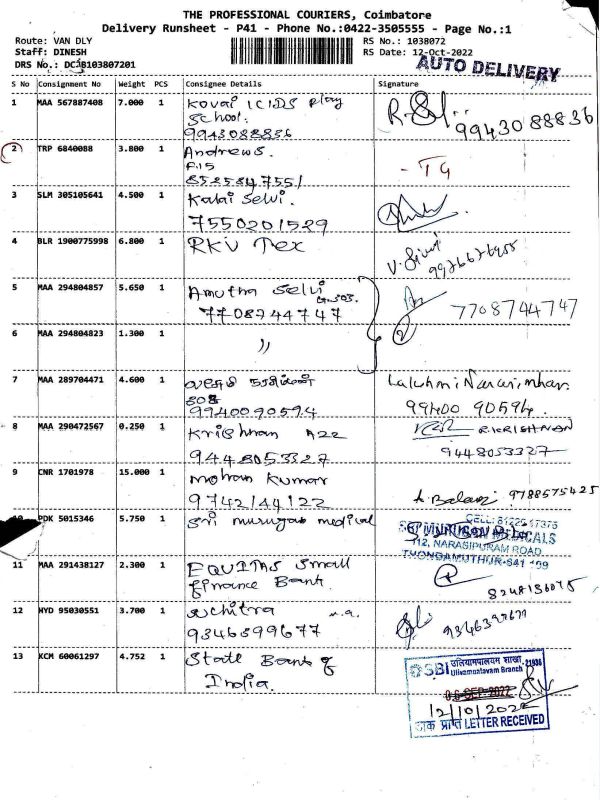 THE PROFESSIONAL COURIERS, Coimbatore
Delivery Runsheet - P41 - Phone No.:0422-3505555 - Page No.:1
Route: VAN DLY
RS No.: 1038072
Staff: DINESH
RS Date: 12-Oct-2022
DRS No.: DCJ8103807201
AUTO DELIVERY
S No Consignment No Weight PCS Consignee Details Signature
1 MAA 567887408 7.000 1 Kovai ICIDS Play
School.
9943088836
9943088836
2 TRP 6840088 3.800 1 Andrews.
F.15
8525847551
- TG
3 SLM 305105641 4.500 1 Kalai Selvi.
7550201529
4 BLR 1900775998 6.800 1 RKV Tex
5 MAA 294804857 5.650 1 Amutha Selvi
7708744747
7708744747
6 MAA 294804823 1.300 1 "
2
7 MAA 289704471 4.600 1
308
9940090594
Lakshmi Narasimhan.
99400 90594.
8 MAA 290472567 0.250 1 Krishnan A22
9448053327
R KRISHNAN
9448053327
9 CNR 1701978 15.000 1 Mohan Kumar
9742144122
A. Balaji 9788575425
PDK 5015346 5.750 1 Sri murugan medical
112, NARASIPURAM ROAD
THONDAMUTHUR-641 109
11 MAA 291438127 2.300 1 EQUITAS Small
finance Bank.
8248136075
12 HYD 95030551 3.700 1 Suchitra
9346399677
9346399677
13 KCM 60061297 4.752 1 State Bank of
India.
SBI उलियामपालयम शाखा 21936
Uliampalayam Branch
06 SEP 2022
12/10/2022
डाक प्राप्त LETTER RECEIVED